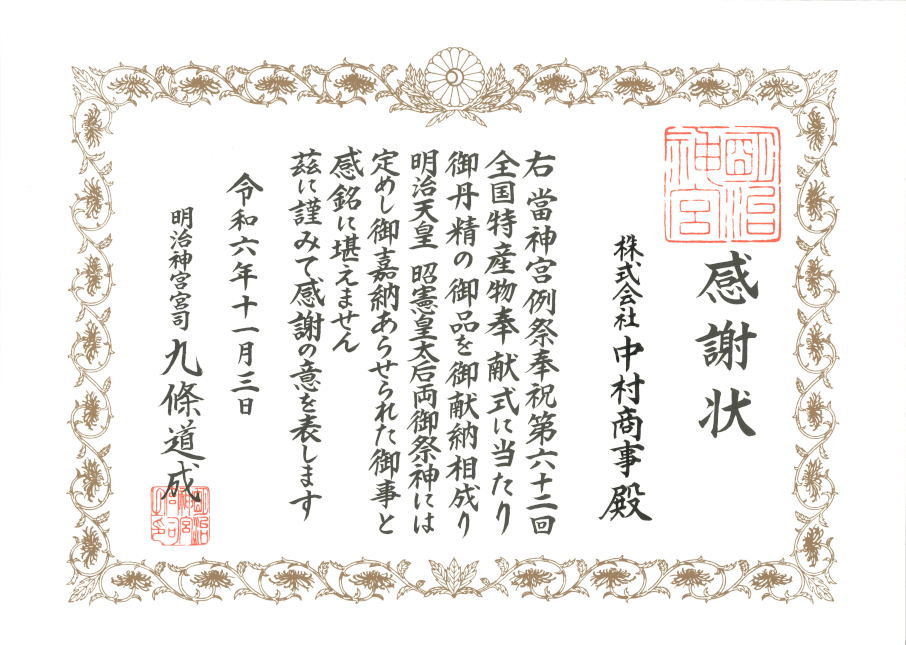 明治神宮
感謝状
株式会社 中村商事 殿
右 當神宮例祭奉祝第六十二回
全国特産物奉献式に当たり
御丹精の御品を御献納相成り
明治天皇 昭憲皇太后両御祭神には
定めし御嘉納あらせられた御事と
感銘に堪えません
茲に謹みて感謝の意を表します
令和六年十一月三日
明治神宮宮司 九條道成